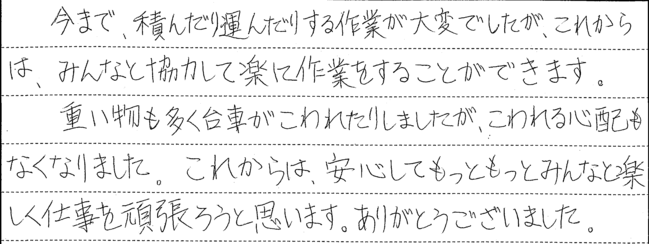 今まで、積んだり運んだりする作業が大変でしたが、これから
は、みんなと協力して楽に作業をすることができます。
重い物も多く台車がこわれたりしましたが、こわれる心配も
なくなりました。これからは、安心してもっともっとみんなと楽
しく仕事を頑張ろうと思います。ありがとうございました。